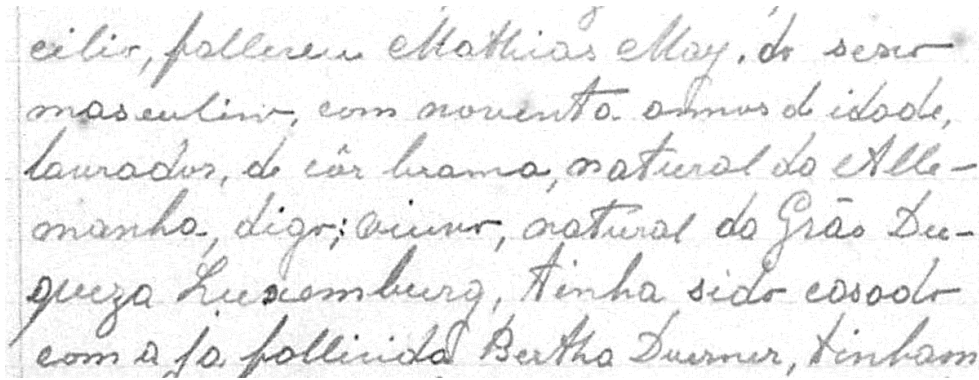 cilio, falleceu Mathias May, do sexo
masculino, com noventa annos de idade,
laurador, de côr branca, natural da Alle-
manha, digo; viuvo, natural do Grão Du-
queza Luxemburg, tinha sido casado
com a já fallicida Bertha Duerner, tinham